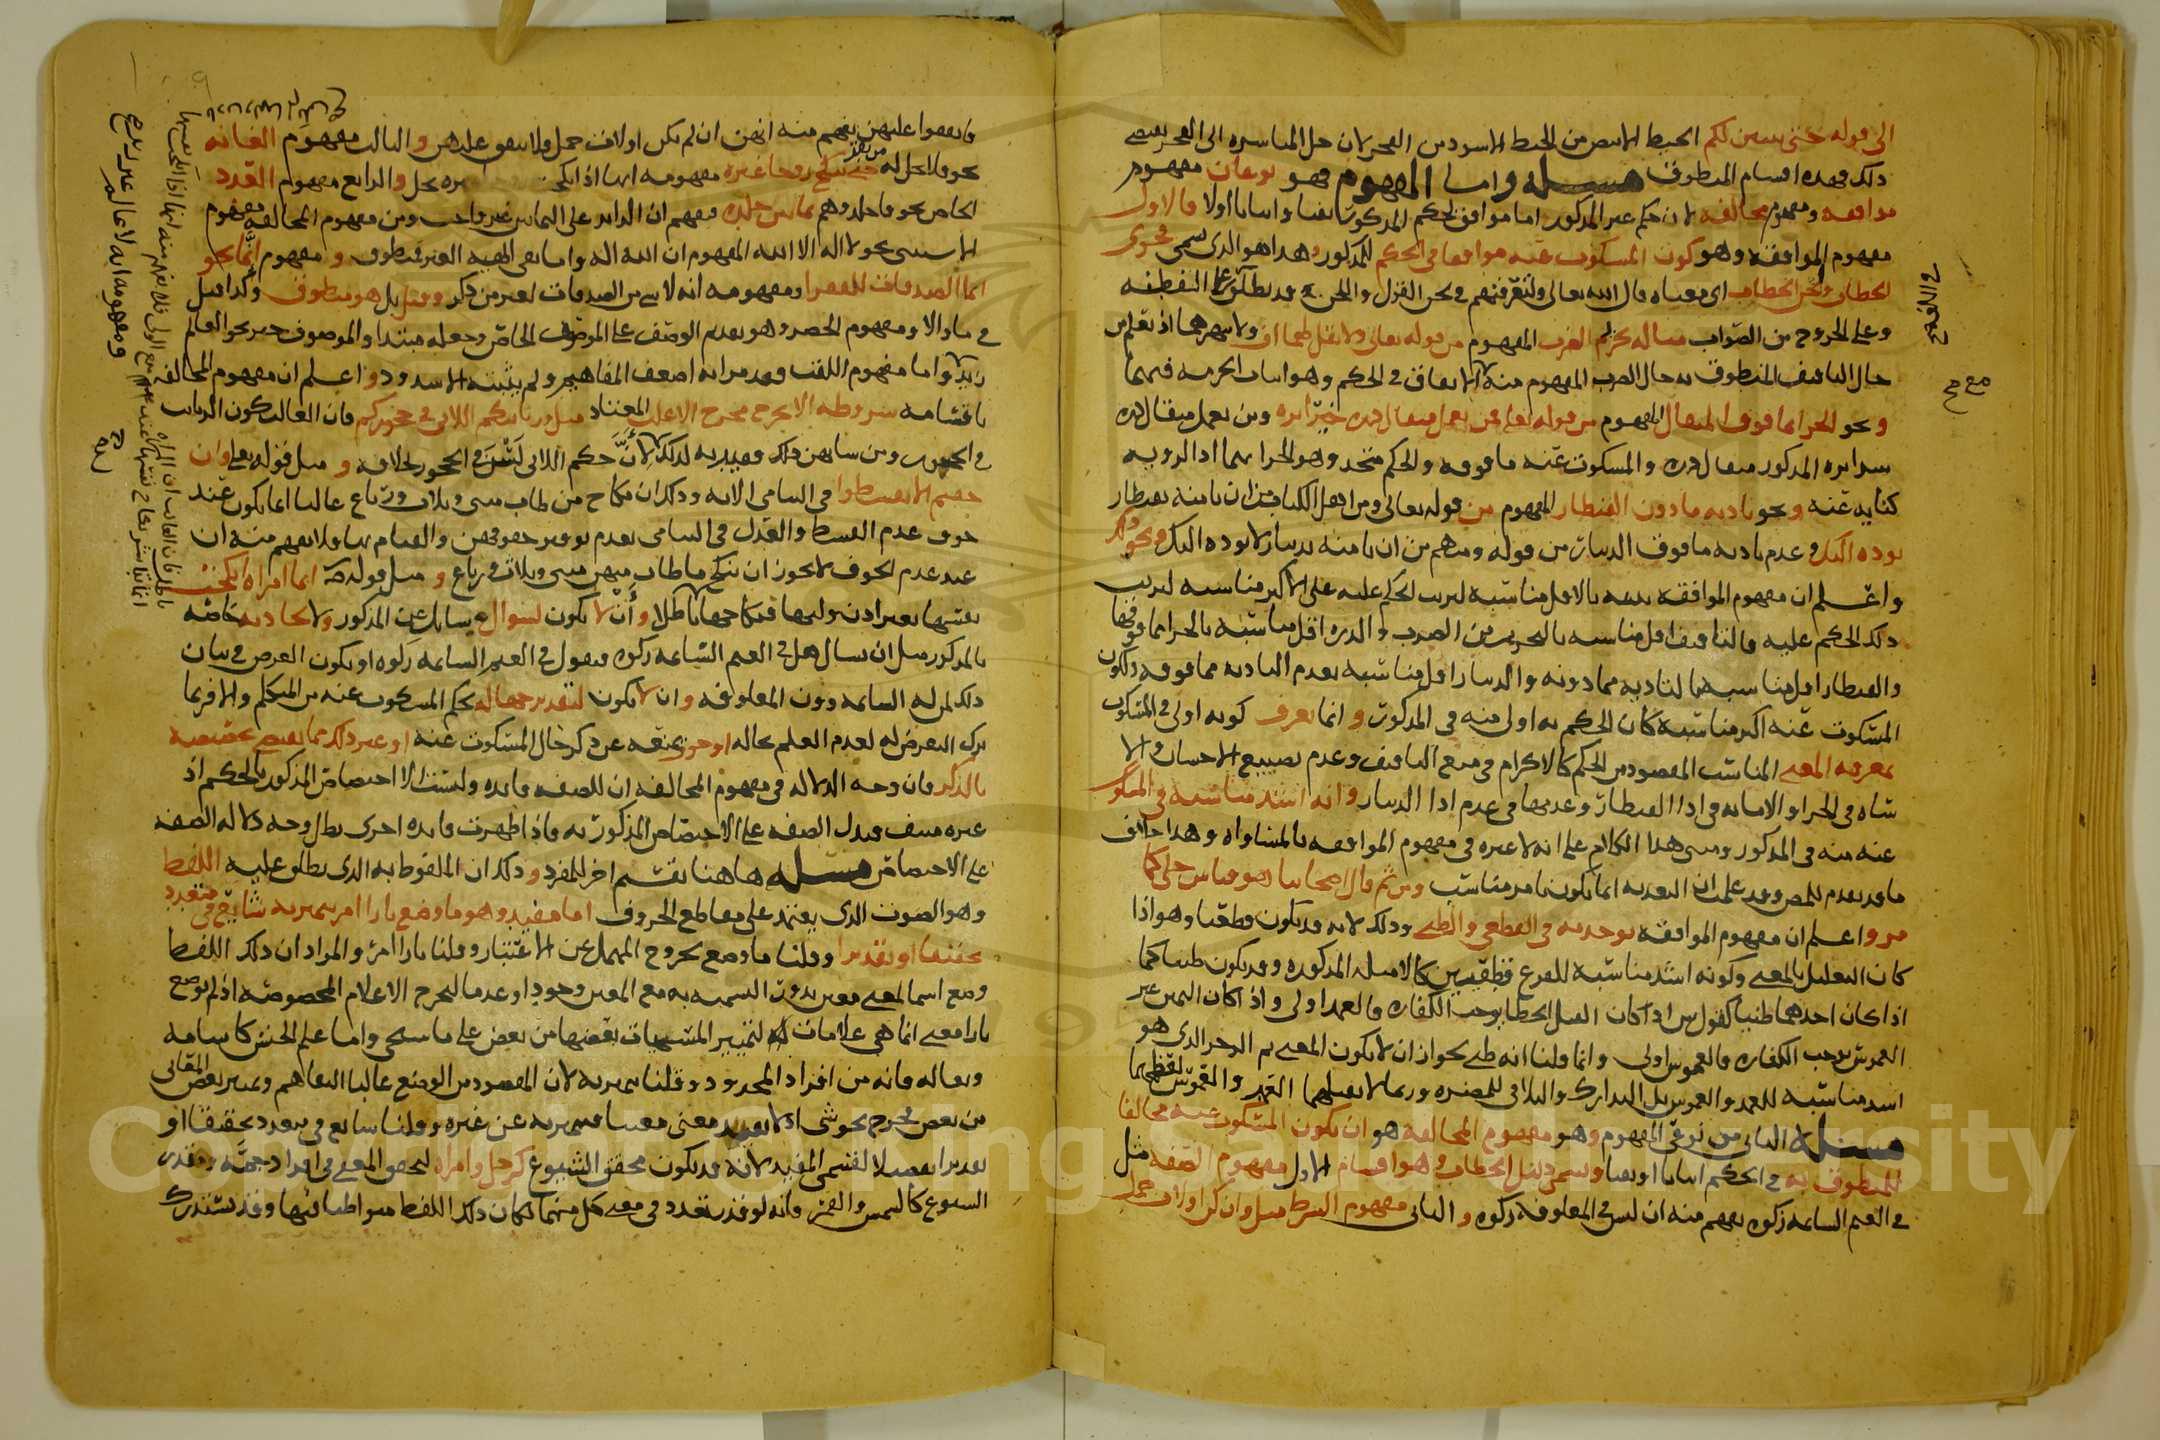 الى قوله حتى يتبين لكم الخيط الابيض من الخيط الاسود من الفجر لان حل المباشره الى الفجر يقتضي
ذلك فهذه اقسام المنطوق مسله واما المفهوم فهو نوعان مفهوم
موافقه ومفهوم مخالفه لان حكم غير المذكور اما موافق لحكم المذكور نفيا واثباتا اولا فالاول
مفهوم الموافقه وهو كون المسكوت عنه موافقا في الحكم للمذكور وهذا هو الذي سمى فحوى
الخطاب ولحن الخطاب اي معناه قال الله تعالى ولتعرفنهم في لحن القول واللحن قد يطلق على الفطنه
وعلى الخروج من الصواب مثاله تحريم الضرب المفهوم من قوله تعالى ولا تقل لهما اف ولا تنهرهما اذ يعلم من
حال التافيف المنطوق به حال الضرب المفهوم منه الاتفاق في الحكم وهو اثبات الحرمه فيهما
ونحو الجزا بما فوق المثقال المفهوم من قوله تعالى فمن يعمل مثقال ذره خيرا يره ومن يعمل مثقال ذره
شرا يره المذكور مثقال ذره والمسكوت عنه ما فوقه والحكم متحد وهو الجزا بهما اذ الرويه
كنايه عنه ونحو تاديه ما دون القنطار المفهوم من قوله تعالى ومن اهل الكتاب من ان تامنه بقنطار
يوده اليك وعدم تاديه ما فوق الدينار من قوله ومنهم من ان تامنه بدينار لا يوده اليك
واعلم ان مفهوم الموافقه تنبيه بالاقل مناسبه لترتب الحكم عليه على الاكثر مناسبه لترتب
ذلك الحكم عليه فالتافيف اقل مناسبه بالتحريم من الضرب والذره اقل مناسبه بالجزا مما فوقها
والقنطار اقل مناسبه بالتاديه مما دونه والدينار اقل مناسبه بعدم التاديه مما فوقه
المسكوت عنه اكثر مناسبه كان الحكم به اولى منه في المذكور وانما يعرف كونه اولى في المسكوت
بمعرفه المعنى المناسب المقصود من الحكم كالاكرام في منع التافيف وعدم تضييع الاحسان
في الجزا والامانه في ادا القنطار وعدمها في عدم ادا الدينار وانه اشد مناسبه في المسكوت
عنه منه في المذكور ومبنى هذا الكلام على انه لا عبره في مفهوم الموافقه بالمساواه وهذا خلاف
ما قد تقدم للمص وقد علمت ان التعديه انما تكون بامر مناسب ومن ثم قال اصحابنا هو قياس جلي كما
مر واعلم ان مفهوم الموافقه توجد به في القطعي والظني وذلك لانه قد يكون قطعيا وهو اذا
كان التعليل بالمعنى وكونه اشد مناسبه للفرع قطعيين كالامثله المذكوره وقد يكون ظنيا كما
اذا كان احدهما ظنيا كقول ش اذا كان القتل الخطا يوجب الكفاره فالعمد اولى واذا كان اليمين غير
الغموس يوجب الكفاره فالغموس اولى وانما قلنا انه ظني لجواز ان لا يكون المعنى ثم الزجر الذي هو
اشد مناسبه للعمد والغموس بل التدارك والتلافي للمضره وربما لا يقبلهما العمد والغموس لعظمهما
مسله الثاني من نوعي المفهوم وهو مفهوم المخالفه هو ان يكون المسكوت عنه مخالفا
للمنطوق به في الحكم اثباتا او نفيا ويسمى دليل الخطاب وهو اقسام الاول مفهوم الصفه مثل
في الغنم السائمه زكوه يفهم منه ان ليس في المعلوفه زكوه والثاني مفهوم الشرط مثل وان كن اولات حمل
فانفقوا عليهن يفهم منه انهن ان لم يكن اولات حمل فلا ينفق عليهن والثالث مفهوم الغايه
نحو فلا تحل له من بعد حتى تنكح زوجا غيره مفهومه انها اذا نكحت غيره تحل والرابع مفهوم العدد
الخاص نحو فاجلدوهم ثمانين جلده مفهم ان الزايد على الثمانين غير واجب ومن مفهوم المخالفه مفهوم
الاستثنى نحو لا اله الا الله المفهوم ان الله اله واما نفي الهيه الغير فمنطوق ومفهوم انما نحو
انما الصدقات للفقرا ومفهومه انه لا شي من الصدقات لغير من ذكر وقيل بل هو منطوق وكذا قيل
في ما والا ومفهوم الحصر وهو تقديم الوصف على الموصوف الخاص وجعله مبتدا والموصوف خبر نحو العالم
زيد واما مفهوم اللقب فقد مر انه اضعف المفاهيم ولم يثبته الا شذوذ واعلم ان مفهوم المخالفه
باقسامه شروطه الا يخرج مخرج الاغلب المعتاد مثل وربائبكم اللاتي في حجوركم فان الغالب كون الربايب
في الحجور ومن شانهن ذلك فقيد به لذلك لان حكم اللاتي لسن في الحجور بخلافه ومثل قوله تعالى وان
خفتم الا تقسطوا في اليتامى الايه وذلك ان نكاح من طاب مثنى وثلاث ورباع غالبا انما يكون عند
خوف عدم القسط والعدل في اليتامى بعدم توفير حقوقهن والقيام بها ولا يفهم منه ان
عند عدم الخوف لا يجوز ان ننكح ما طاب منهن مثنى وثلاث ورباع ومثل قوله ص ايما امراه انكحت
نفسها بغير اذن وليها فنكاحها باطل وان لا يكون لسوال سايل عن المذكور ولا لحادثه خاصه
بالمذكور مثل ان يسال هل في الغنم السائمه زكوه فيقول في الغنم السائمه زكوه او يكون الغرض في بيان
ذلك لمن له السائمه دون المعلوفه وان لا يكون لتقدير جهاله بحكم المسكوت عنه من المتكلم والا فربما
ترك التعرض له لعدم العلم بحاله او خوف يمنعه عن ذكر حال المسكوت عنه او غير ذلك مما يقتضي تخصيصه
بالذكر فان وجه الدلاله في مفهوم المخالفه ان للصفه فايده وليست الا اختصاص المذكور بالحكم اذ
غيره منتف فتدل الصفه على الاختصاص المذكور به فاذا ظهرت فايده اخرى بطل وجه دلاله الصفه
على الاختصاص مسله هاهنا تقسيم اخر للمفرد وذلك ان الملفوظ به الذي يطلق عليه اللفظ
وهو الصوت الذي يعتمد على مقاطع الحروف اما مفيد وهو ما وضع بازا امر يميز به شايع في متعدد
تحقيقا او تقديرا وقلنا ما وضع يخرج المهمل عن الاعتبار وقلنا بازا امر والمراد ان ذلك اللفظ
وضع اسما لمعنى معين يدور التسميه به مع المعين وجودا وعدما ليخرج الاعلام المخصوصه اذ لم توضع
بازا معنى انما هي علامات لتمييز المسميات بعضها من بعض على ما سيجي واما علم الجنس كاسامه
وثعاله فانه من افراد المحدود وقلنا يميز به لان المقصود من الوضع غالبا التفاهم وتمييز بعض المعاني
من بعض فخرج نحو شى اذ لا يفيد معنى معينا يتميز به عن غيره وقلنا شايع في متعدد تحقيقا او
تقديرا تفصيلا لقسمي المفيد لانه قد يكون محقق الشيوع كرجل وامراه لتحقق المعنى في افراد جمه
الشيوع كالشمس والقمر فانه لو قدر تعدد في معنى كل منهما لكان ذلك اللفظ متواطيا فيها وقد تستدرك